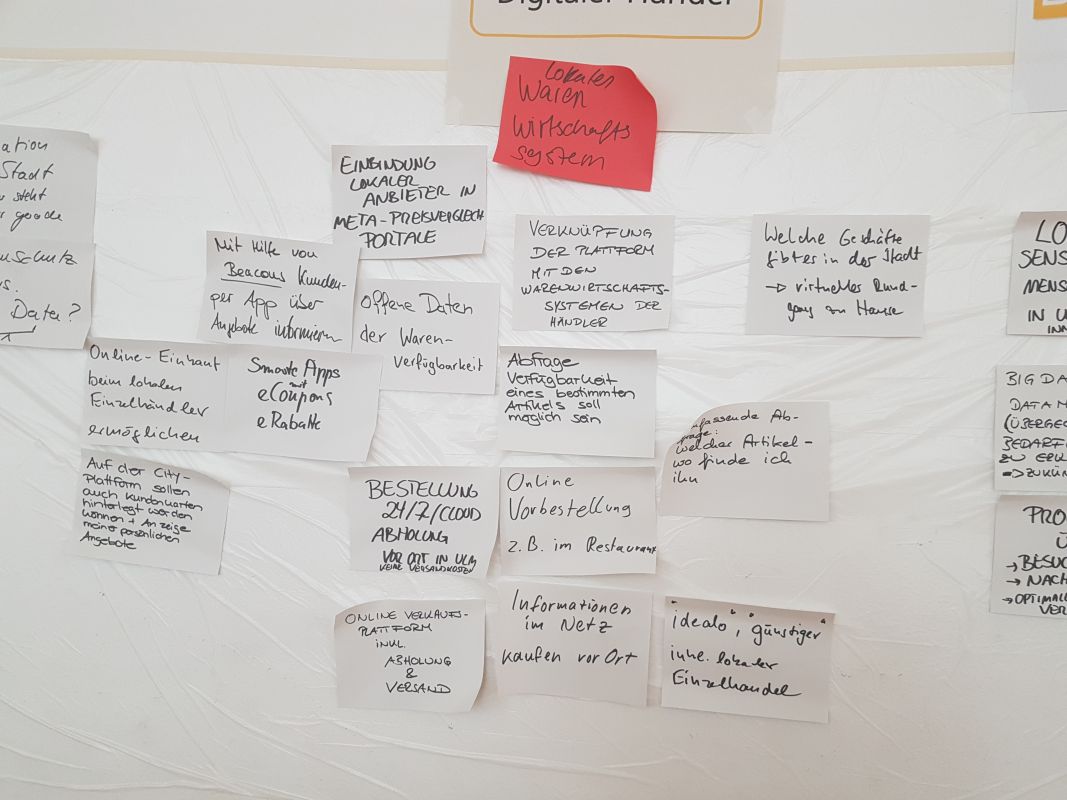 Digitaler Händler
Lokales
Waren
Wirtschafts
system
ation
Stadt
steht
gerade
schutz
s.
Daten?
EINBINDUNG
LOKALER
ANBIETER IN
META-PREISVERGLEICH
PORTALE
Mit Hilfe von
Beacons Kunden
per App über
Angebote informieren
Offene Daten
der Waren-
verfügbarkeit
VERKNÜPFUNG
DER PLATTFORM
MIT DEN
WARENWIRTSCHAFTS-
SYSTEMEN DER
HÄNDLER
Welche Geschäfte
gibt es in der Stadt
→ virtueller Rund-
gang von Hause
LO
SENS
MENS
IN U
INN
Online-Einkauf
beim lokalen
Einzelhändler
ermöglichen
Smarte Apps
mit
eCoupons
eRabatte
Abfrage
Verfügbarkeit
eines bestimmten
Artikels soll
möglich sein
fassende Ab-
frage:
welcher Artikel -
wo finde ich
ihn
BIG DA
DATA M
(ÜBERGE
BEDARF
ZU ERK
=> ZUKÜN
Auf der City-
Plattform sollen
auch Kundenkarten
hinterlegt werden
können + Anzeige
meiner persönlichen
Angebote
BESTELLUNG
24/7/CLOUD
ABHOLUNG
VOR ORT IN ULM
KEINE VERSANDKOSTEN
Online
Vorbestellung
z.B. im Restaurant
PRO
Ü
→ BESUC
→ NACH
→ OPTIMALE
VER
ONLINE VERKAUFS-
PLATTFORM
INKL.
ABHOLUNG
&
VERSAND
Informationen
im Netz
kaufen vor Ort
"idealo", "günstiger"
inkl. lokaler
Einzelhandel